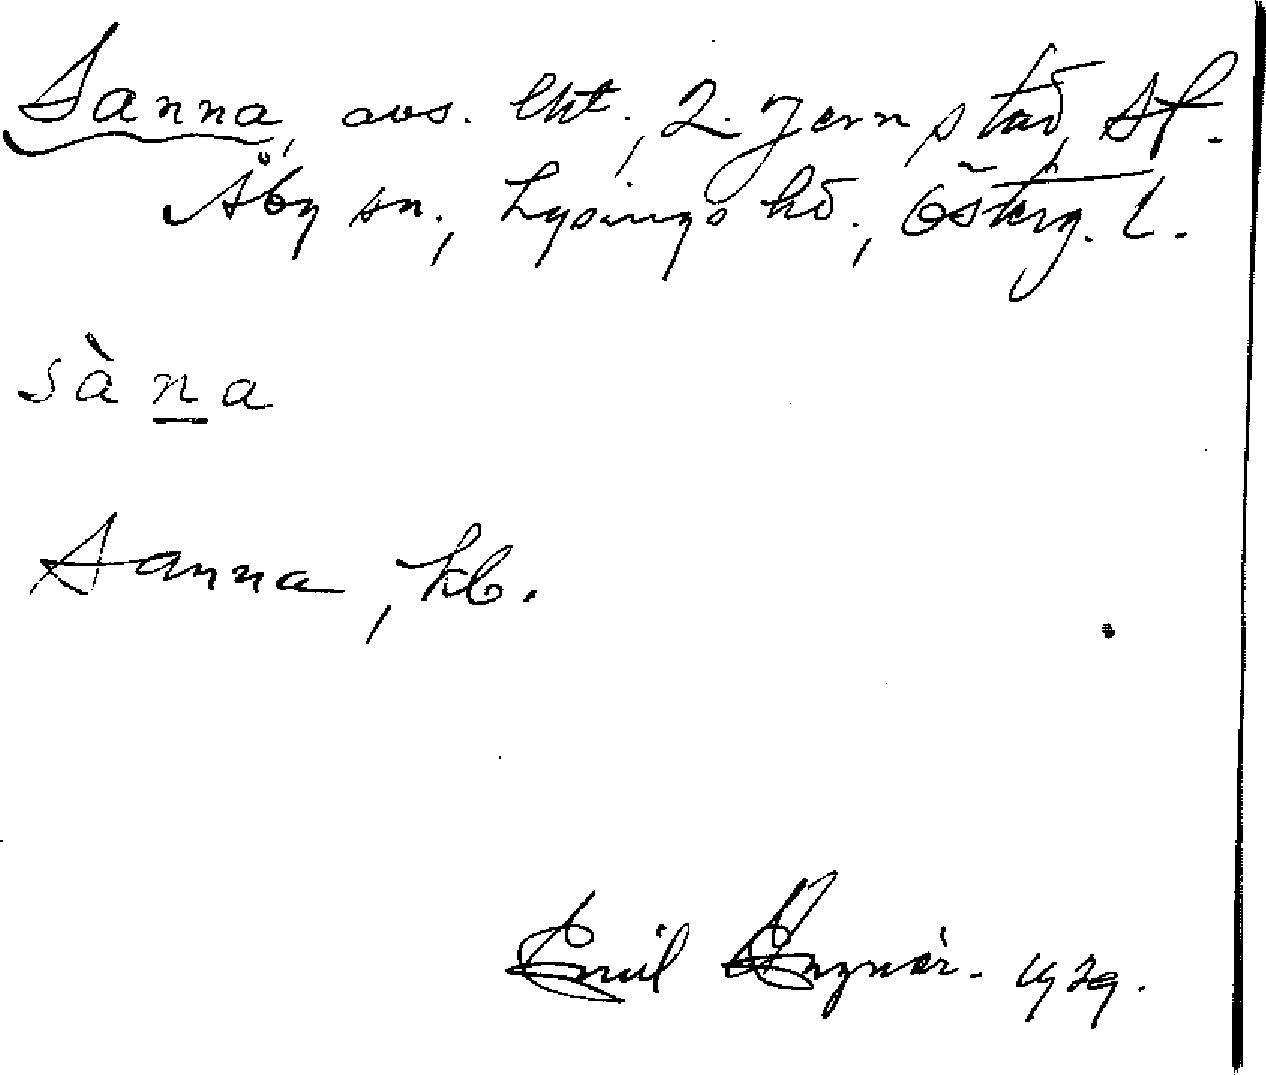 Sanna, avs. lht., 2. Jernstad, St.
Åby sn., Lysings hd., Österg. l.
sàna
Sanna, kb.
Emil 1929.